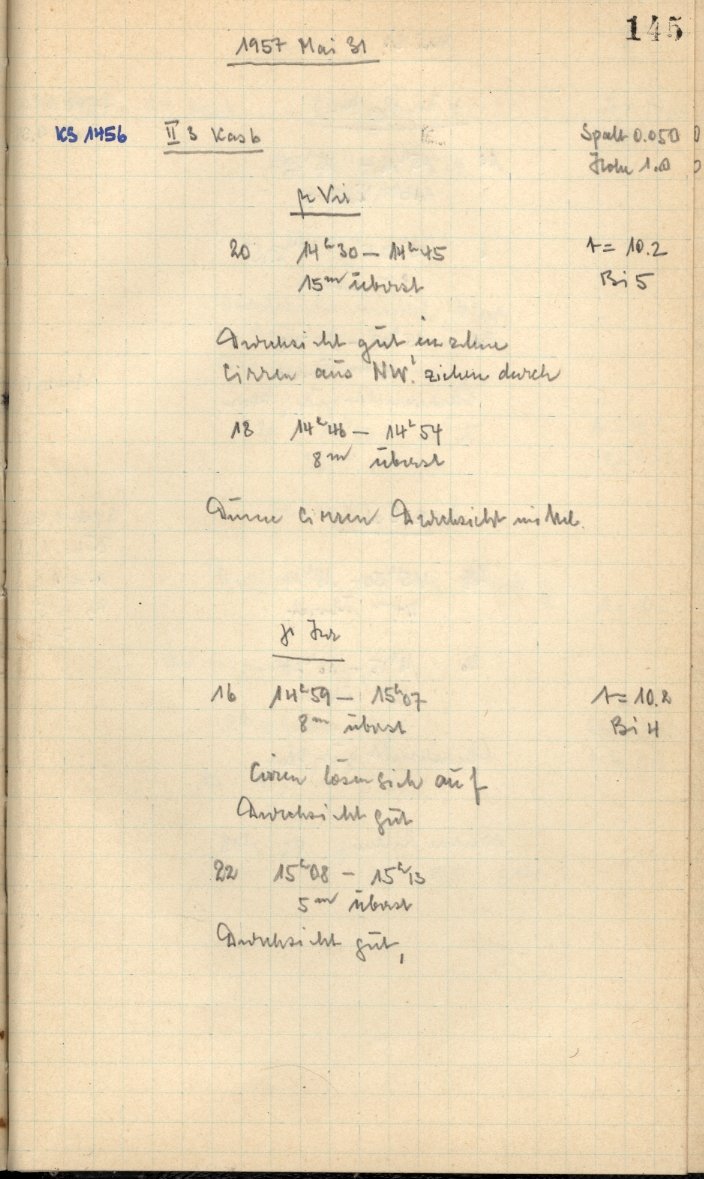 145
1957 Mai 31
KS 1456 II 3 Kas b Spalt 0.050
1.0
μ Vir
20 14ʰ30 – 14ʰ45 t = 10.2
15ᵐ überst Bi 5
Durchsicht gut einzelne
Cirren aus NW! ziehen durch
18 14ʰ46 – 14ʰ54
8ᵐ überst
Dünne Cirren Durchsicht mittel.
16 14ʰ59 – 15ʰ07 t = 10.2
8ᵐ überst Bi 4
Cirren lösen sich auf
Durchsicht gut
22 15ʰ08 – 15ʰ13
5ᵐ überst
Durchsicht gut,